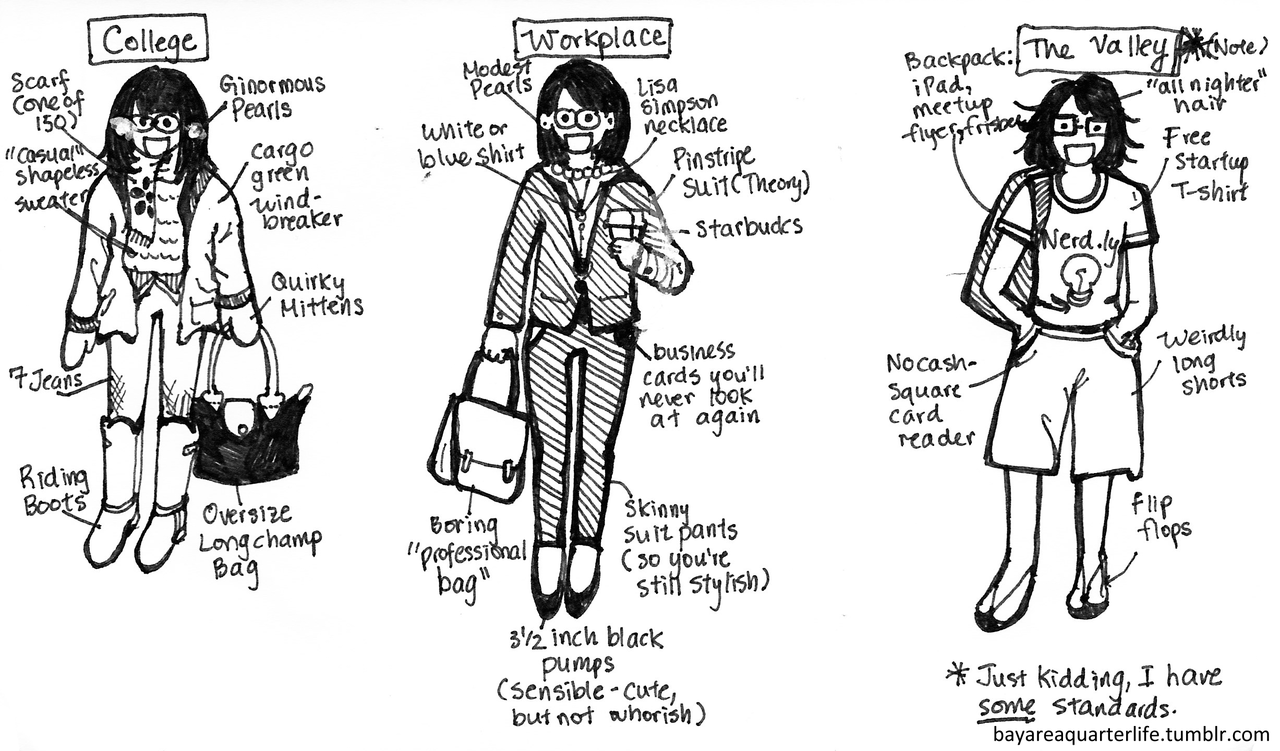 College
Scarf
(one of
150)
Ginormous
Pearls
"casual"
shapeless
sweater
cargo
green
wind-
breaker
Quirky
Mittens
7 Jeans
Riding
Boots
Oversize
Longchamp
Bag
Workplace
Modest
Pearls
Lisa
Simpson
necklace
White or
blue shirt
Pinstripe
Suit (Theory)
Starbucks
business
cards you'll
never look
at again
Boring
"professional
bag"
Skinny
suit pants
(so you're
still stylish)
3½ inch black
pumps
(sensible-cute,
but not whorish)
The Valley *(Note)
Backpack:
iPad,
meetup
flyers, frisbee
"all nighter"
hair
Free
Startup
T-shirt
Nerd.ly
No cash-
Square
card
reader
Weirdly
long
shorts
flip
flops
* Just kidding, I have
some standards.
bayareaquarterlife.tumblr.com